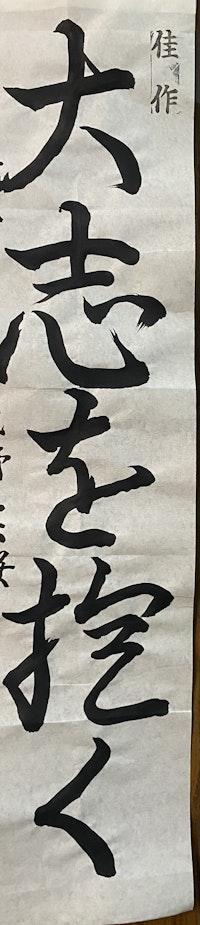 佳作
大志を抱く